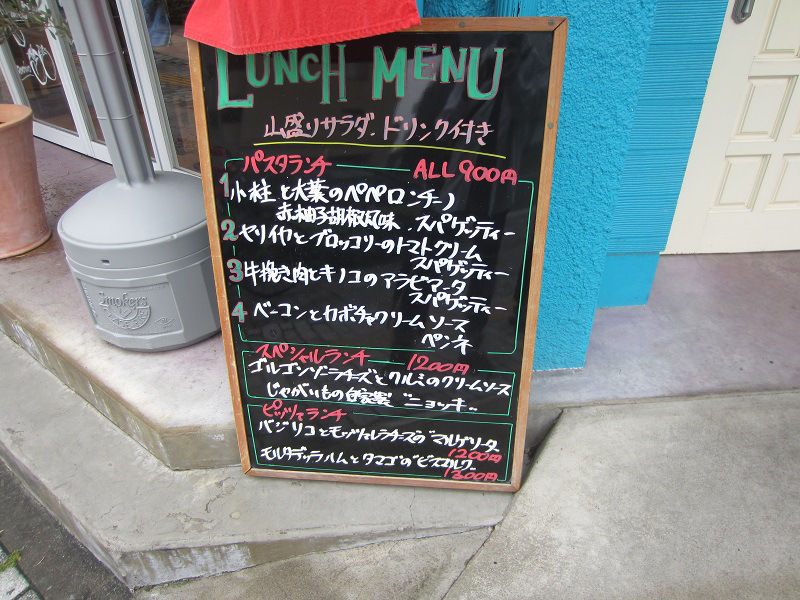 LUNCH MENU
山盛りサラダ、ドリンク付き
パスタランチ ALL 900円
1 小柱と大葉のペペロンチーノ
赤柚子胡椒風味 スパゲッティー
2 ヤリイカとブロッコリーのトマトクリーム
スパゲッティー
3 牛挽き肉とキノコのアラビアータ
スパゲッティー
4 ベーコンとカボチャクリームソース
ペンネ
スペシャルランチ 1200円
ゴルゴンゾーラチーズとクルミのクリームソース
じゃがいもの自家製"ニョッキ"
ピッツァランチ
バジリコとモッツァレラチーズの"マルゲリータ"
1200円
モルタデッラハムとタマゴの"ビスマルク"
1300円
Smokers